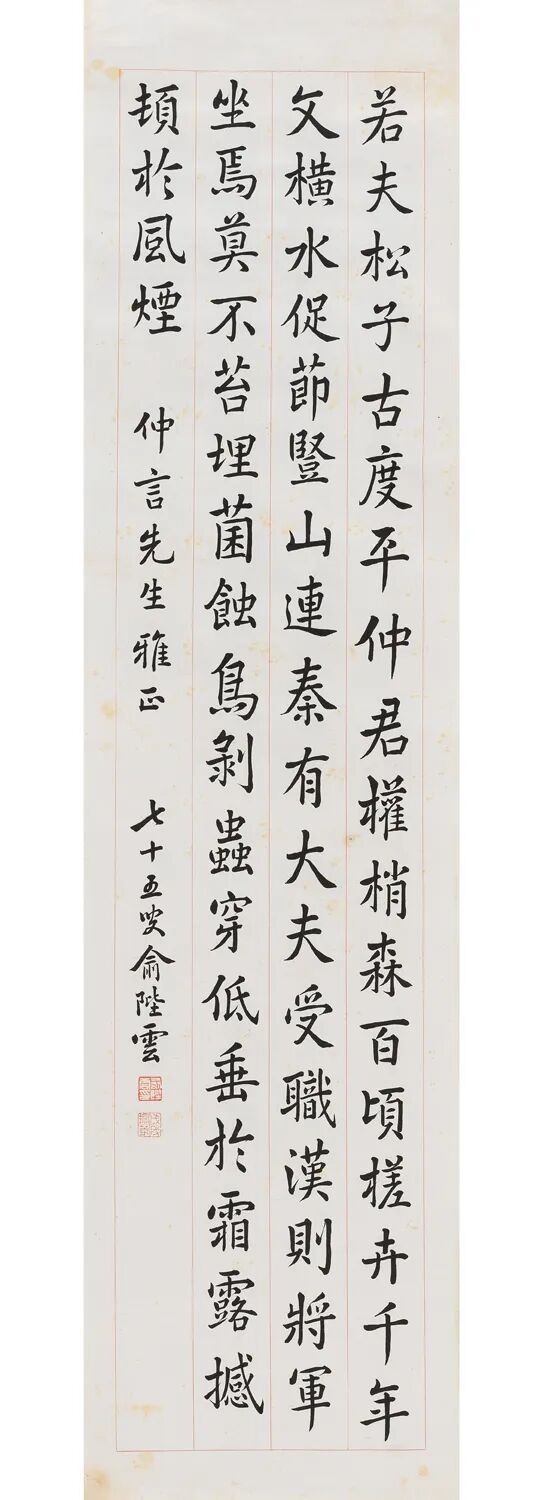 若夫松子古度平仲君權梢森百頃槎卉千年
文橫水促節豎山連秦有大夫受職漢則將軍
坐焉莫不苔埋菌蝕鳥剝蟲穿低垂於霜露撼
頓於風煙 仲言先生雅正 七十五叟俞陛雲